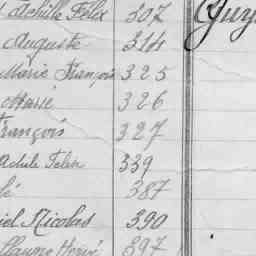 Achille Félix 307
Auguste 314
Marie François 325
Marie 326
François 327
Achile Felix 339
387
Nicolas 390
Hervé 397
Guy